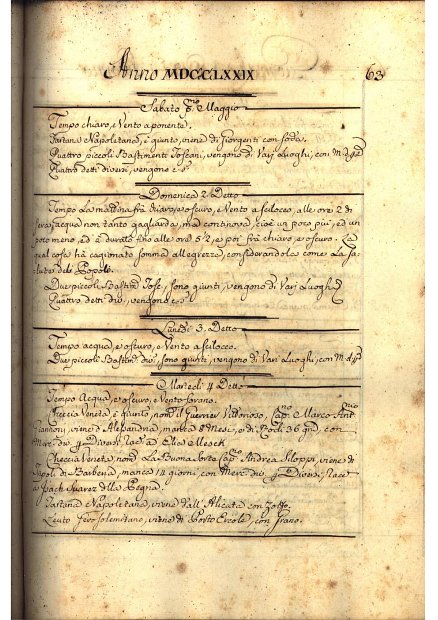 Anno MDCCLXXIX 63
Sabato p.mo Maggio
Tempo chiaro, e Vento a ponente.
Tartana Napoletana, è giunto, viene di Giorgenti con soda.
Quattro piccoli Bastimenti Toscani, vengono di Varj Luoghi, con
Quattro detti diversi, vengono
Domenica 2 Detto
Tempo La mattina frà chiaro, e oscuro, e Vento a scilocco, alle ore 2 di
sera, acqua non tanto gagliarda, ma continova, cioè un poco più, ed un
poco meno, ed è durato fino alle ore 5 2, e poi frà chiaro, e oscuro. La
qual cosa hà cagionato somma allegrezza, considerandola come La Sa-
lute del Popolo.
Due piccoli Bastim. Tosc., sono giunti, vengono di Varj Luoghi
Quattro detti div., vengono
Lunedì 3. Detto
Tempo acqua, e oscuro, e Vento a scilocco.
Due piccoli Bastim. div., sono giunti, vengono di Varj Luoghi, con
Martedì 4 Detto
Tempo Acqua, e oscuro, e Vento
Checcia Veneta è giunto, nom. il Guerrier Vittorioso, Cap.no Marco Ant.
viene d'Alessandria, manca 8 Mesi, e di Rodi 36 gni con
Merc. div. p Diversi, Racc. a Elia Meseck
Checcia Veneta nom. La Buona Sorte Cap.no Andrea Siloppi, viene di
Tripoli di Barberia, manca 14 giorni, con Merc. div. p Diversi, Racc.
a Isach Suarez della Pegna.
Tartana Napoletana, viene dall'Alicata con Zolfo.
Leuto Gerosolemitano, viene di Porto Ercole, con grano.